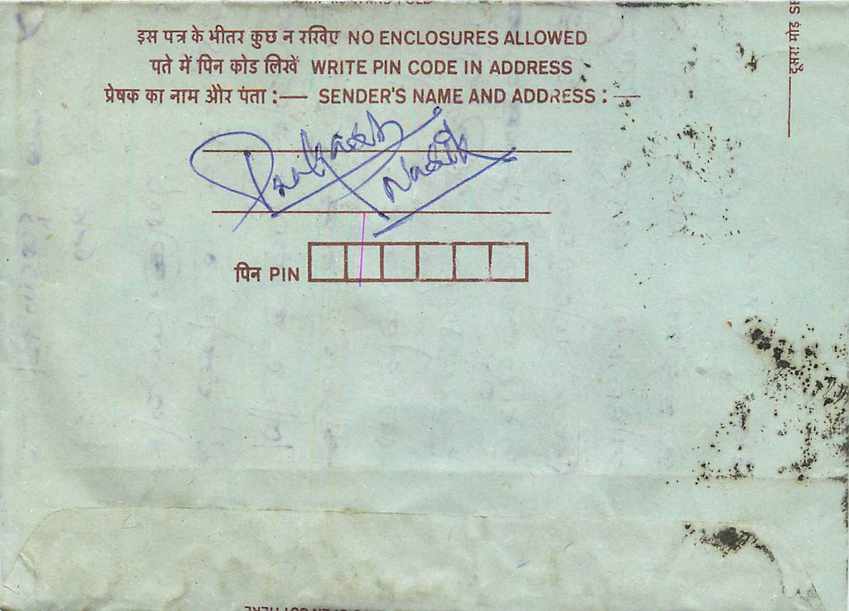 इस पत्र के भीतर कुछ न रखिए NO ENCLOSURES ALLOWED
पते में पिन कोड लिखें WRITE PIN CODE IN ADDRESS
प्रेषक का नाम और पता :— SENDER'S NAME AND ADDRESS : —
Prakash
Nasik
पिन PIN
दूसरा मोड़ SE